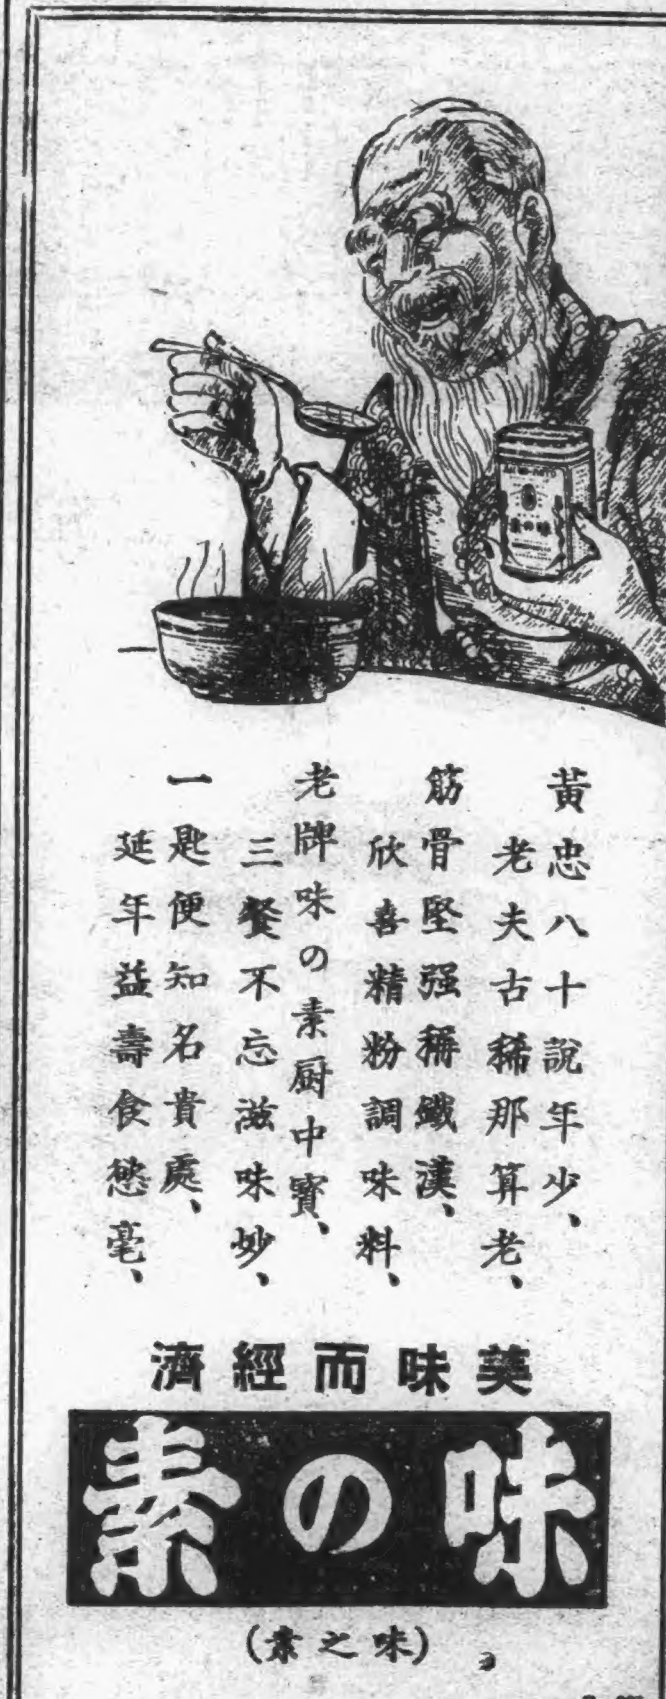 味の素
黃忠八十說年少、
老夫古稀那算老、
筋骨堅强稱鐵漢、
欣喜精粉調味料、
老牌味の素厨中寳、
三餐不忘滋味妙、
一匙便知名貴處、
延年益壽食愈毫、
美味而經濟
味の素
(味之素)